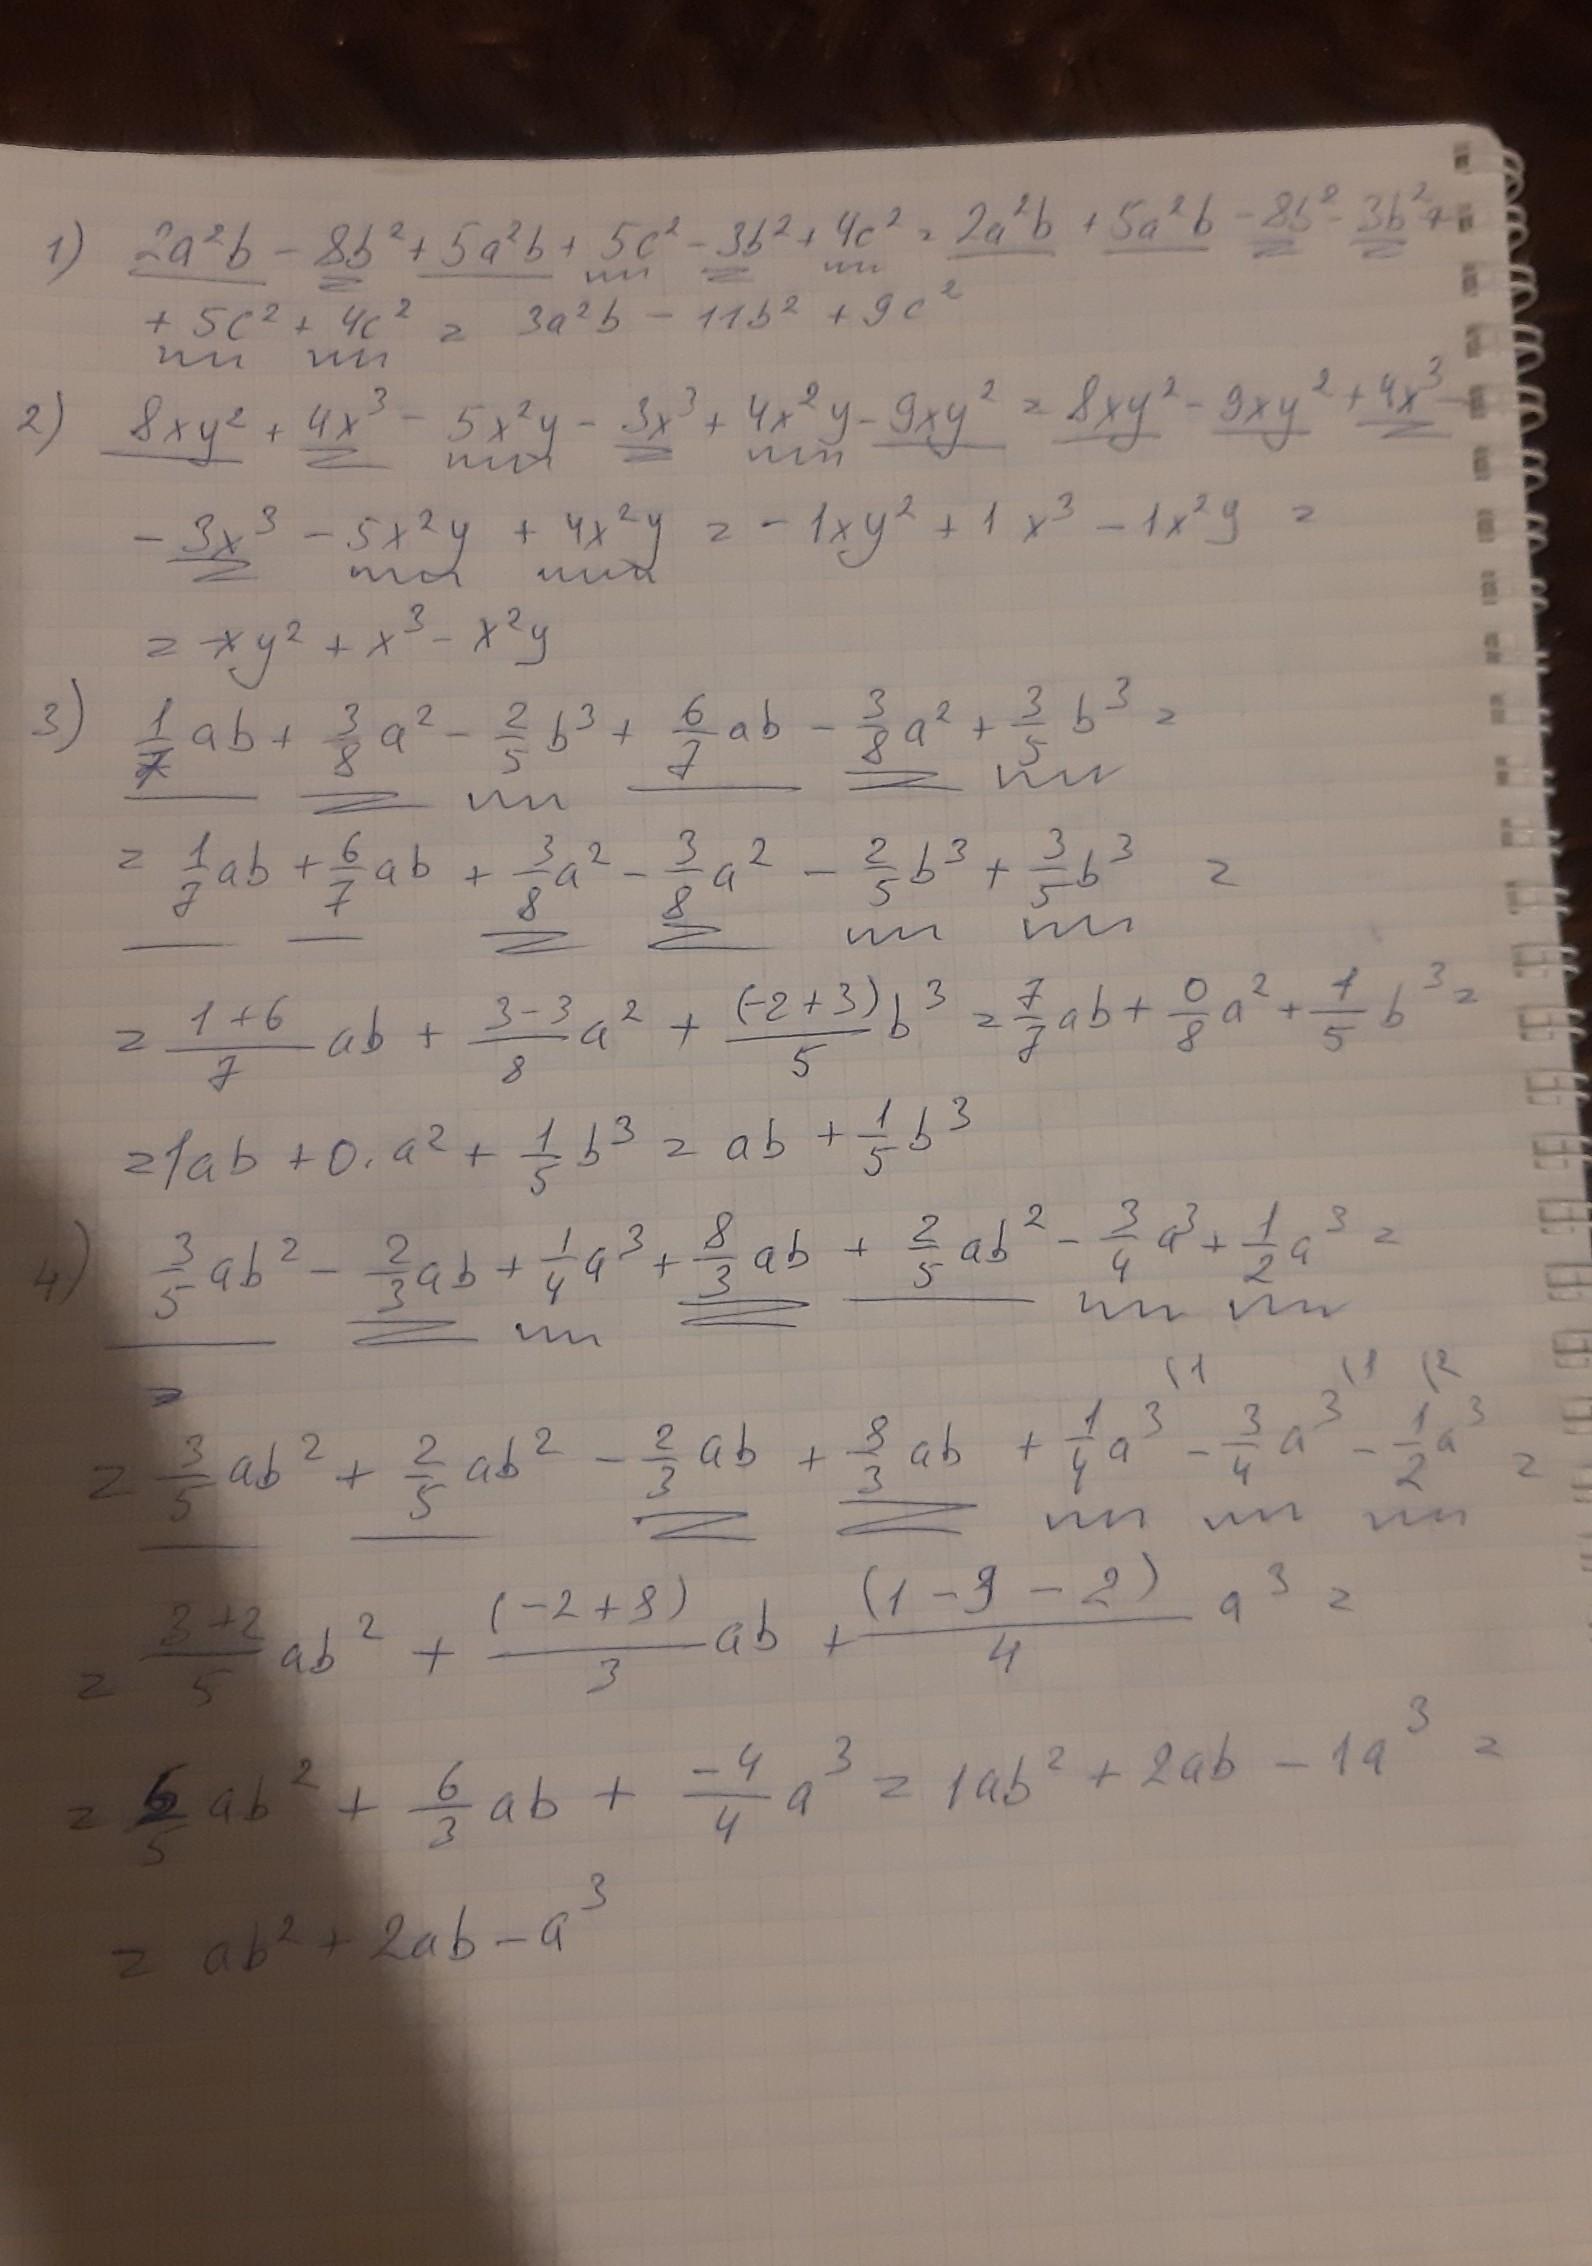 1) 2a²b - 8b² + 5a²b + 5c² - 3b² + 4c² = 2a²b + 5a²b - 8b² - 3b² +
+ 5c² + 4c² = 3a²b - 11b² + 9c²
2) 8xy² + 4x³ - 5x²y - 3x³ + 4x²y - 9xy² = 8xy² - 9xy² + 4x³ -
- 3x³ - 5x²y + 4x²y = - 1xy² + 1x³ - 1x²y =
= -xy² + x³ - x²y
3) 1/7 ab + 3/8 a² - 2/5 b³ + 6/7 ab - 3/8 a² + 3/5 b³ =
= 1/7 ab + 6/7 ab + 3/8 a² - 3/8 a² - 2/5 b³ + 3/5 b³ =
= (1+6)/7 ab + (3-3)/8 a² + (-2+3)/5 b³ = 7/7 ab + 0/8 a² + 1/5 b³ =
= 1ab + 0·a² + 1/5 b³ = ab + 1/5 b³
4) 3/5 ab² - 2/3 ab + 1/4 a³ + 8/3 ab + 2/5 ab² - 3/4 a³ + 1/2 a³ =
(1 (1 (2
= 3/5 ab² + 2/5 ab² - 2/3 ab + 8/3 ab + 1/4 a³ - 3/4 a³ - 1/2 a³ =
= (3+2)/5 ab² + (-2+8)/3 ab + (1-3-2)/4 a³ =
= 5/5 ab² + 6/3 ab + -4/4 a³ = 1ab² + 2ab - 1a³ =
= ab² + 2ab - a³